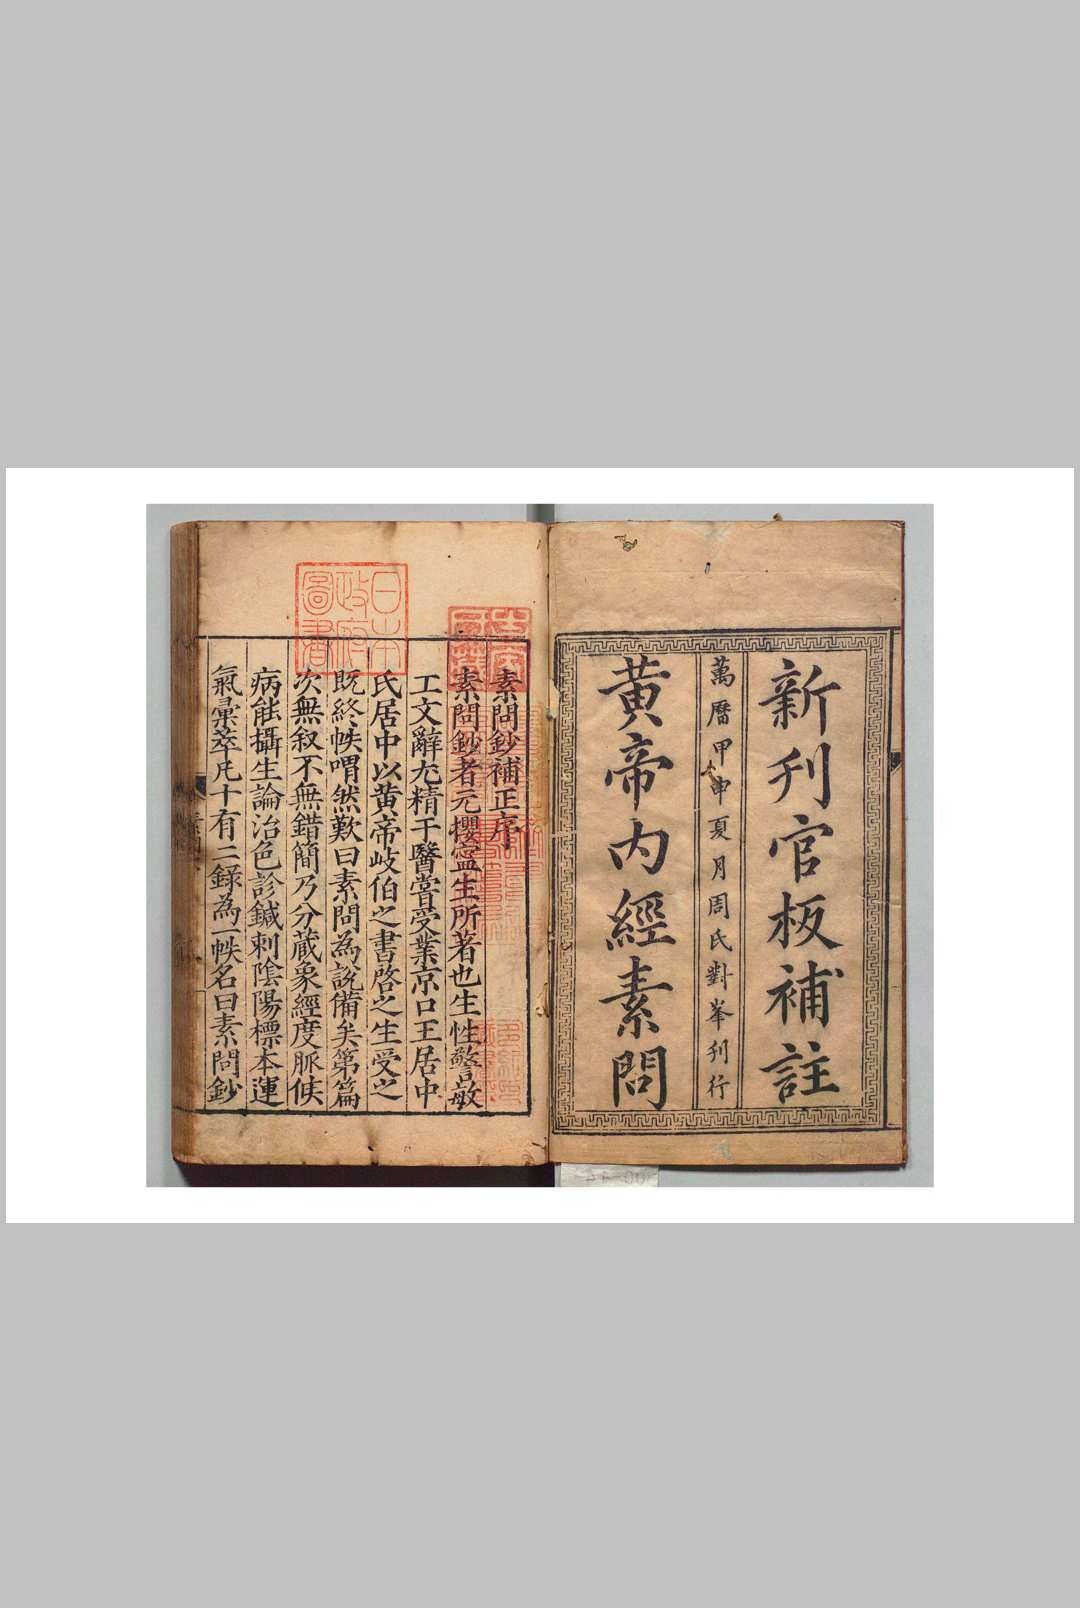 新刋官板補註
萬曆甲申夏月周氏對峯刋行
黄帝内經素問
素問鈔補正序
素問鈔者元攖寧生所著也生性警敏
工文辭尤精于醫嘗受業京口王居中
氏居中以黄帝岐伯之書啓之生受之
既終帙喟然歎曰素問為說備矣第篇
次無叙不無錯簡乃分蔵象經度脈候
病能攝生論治色診鍼刺陰陽標本運
氣彚萃凡十有二錄為一帙名曰素問鈔
日本
政府
圖書